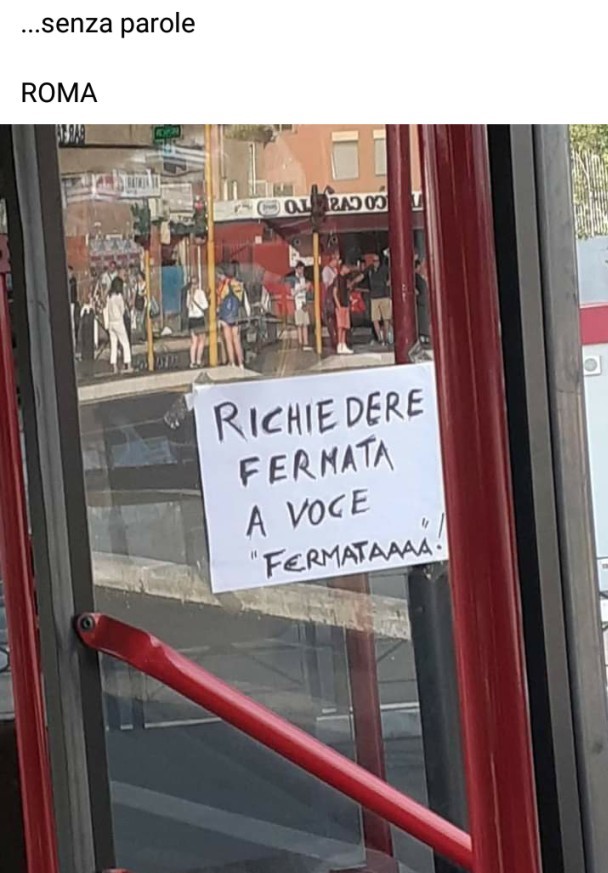 ...senza parole
ROMA
RICHIEDERE
FERMATA
A VOCE
"FERMATAAAA"!